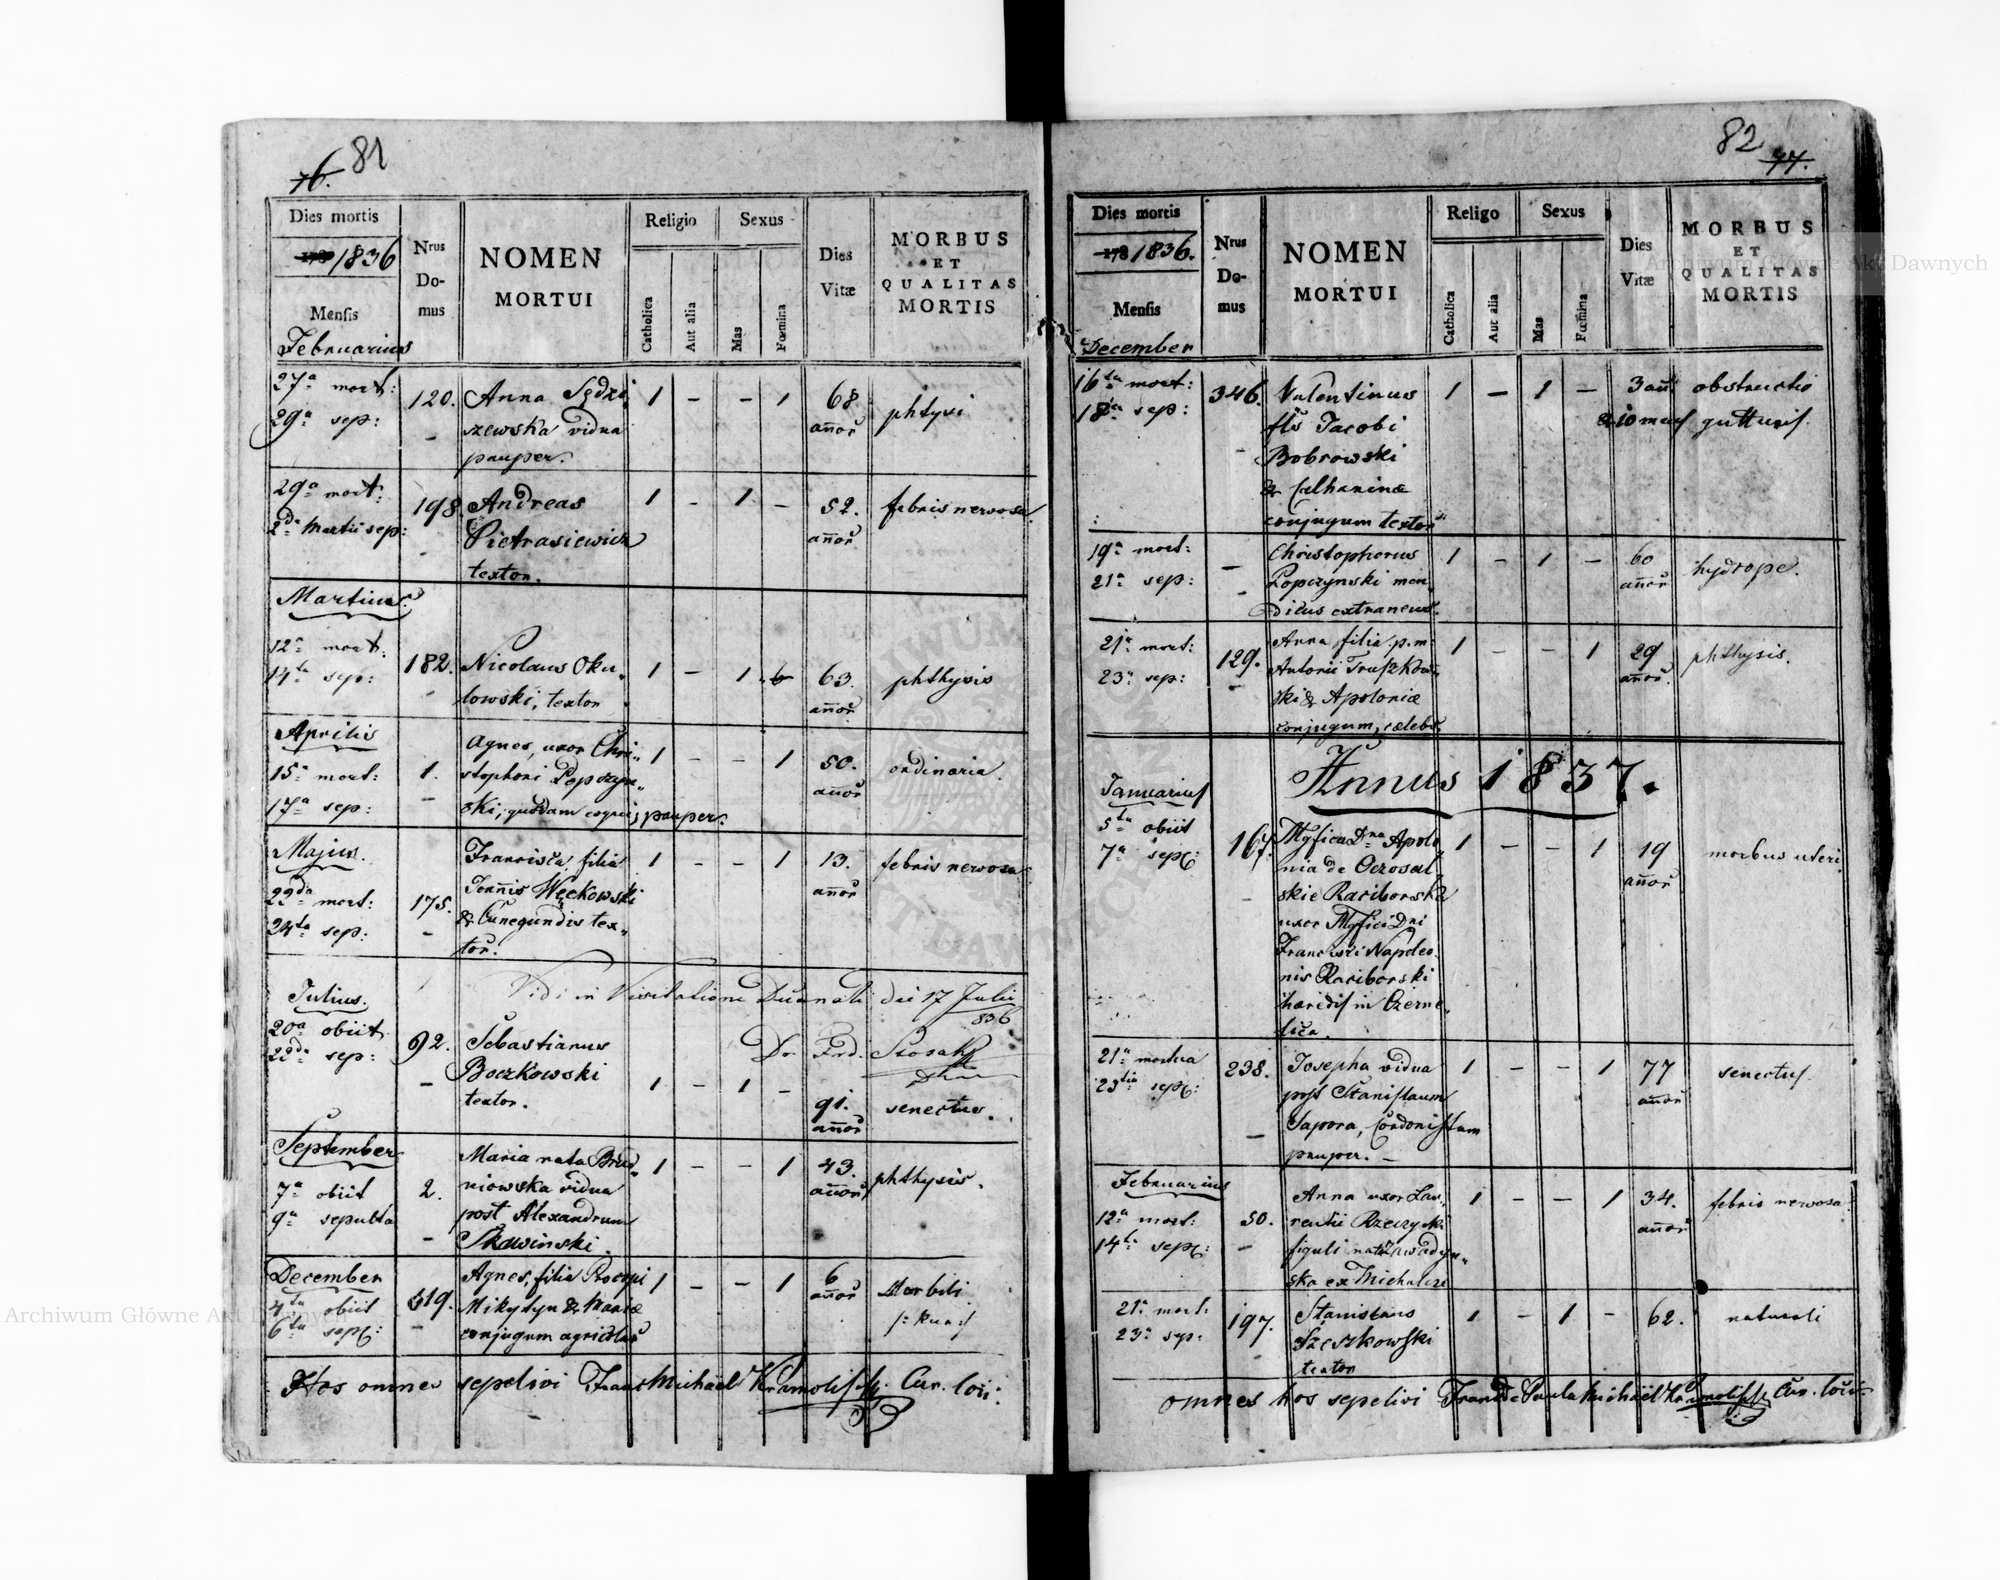 76. 81
Dies mortis
178 1836
Mensis
Februarius
Nrus
Do-
mus
NOMEN
MORTUI
Religio
Catholica
Aut alia
Sexus
Mas
Fœmina
Dies
Vitæ
MORBUS
ET
QUALITAS
MORTIS
27a mort:
29a sep:
120.
Anna Sędzi,
szewska vidua
pauper.
1 - - 1
68
añor
phtysi
29a mort:
2da Martii sep:
198.
Andreas
Pietrasiewicz
textor.
1 - 1 -
52.
añor
febris nervosa.
Martius.
12a mort:
14ta sep:
182.
Nicolaus Oku„
lowski, textor
1 - 1
63.
añor
phthysis
Aprilis
15a mort:
17a sep:
1.
Agnes, uxor Chri„
stophori Popczyn„
ski, quodam coqui, pauper.
1 - - 1
50.
añor
ordinaria.
Majus.
22da mort:
24ta sep:
175.
Francisca filia
Joannis Węckowski
& Cunegundis tex„
tor.
1 - - 1
13.
añor
febris nervosa
Vidi in Visitatione Decanali die 17 Julii
836
Julius.
20a obiit
22da sep:
92.
Sebastianus
Boczkowski
textor.
1 - 1 -
91.
añor
senectus.
September
7a obiit
9a sepulta
2.
Maria nata Brud„
niowska vidua
post Alexandrum
Skawinski.
1 - - 1
43.
añor
phthysis.
December
4ta obiit
6ta sep:
319.
Agnes, filia Procopi
Mikytyn & Mariæ
conjugum agricolar
1 - - 1
6
añor
Morbili
Hos omnes sepelivi Franc Michaël Kramolisch Cur. loci:
82 77.
Dies mortis
178 1836.
Mensis
December
Nrus
Do-
mus
NOMEN
MORTUI
Religo
Catholica
Aut alia
Sexus
Mas
Fœmina
Dies
Vitæ
MORBUS
ET
QUALITAS
MORTIS
16ta mort:
18va sep:
346.
Valentinus
fls Jacobi
Bobrowski
& Catharinæ
conjugum textor
1 - 1 -
3 añ:
& 10 mens
obstructio
gutturis.
19a mort:
21a sep:
-
Christophorus
Popczynski men„
dicus extraneus.
1 - 1 -
60
añor
hydrope.
21a mort:
23a sep:
129.
Anna filia p.m:
Antonii Truszkow„
ski & Apoloniæ
conjugum, cælebs.
1 - - 1
29
añor.
phthysis.
Annus 1837.
Januarius
5ta obiit
7a sep:
167.
Mgfica Dna Apolo„
nia de Ocrosal„
skie Raciborska
uxor Mgfici Dni
Francisci Napoleo„
nis Raciborski
hæredis in Czerne„
lica.
1 - - 1
19
añor
morbus uteri
21a mortua
23tia sep:
238.
Josepha vidua
post Stanislaum
Sapora, Cordonistam
pauper. -
1 - - 1
77
añor
senectus.
Februarius
12a mort:
14ta sep:
50.
Anna uxor Lau„
rentii Rzeczycki
figuli nata Zawadyn„
ska ex Michalcze
1 - - 1
34.
añor
febris nervosa.
21a mort:
23a sep:
197.
Stanislaus
Szeszkowski
textor
1 - 1 -
62.
naturali
omnes hos sepelivi Franc de Paula Michaël Kramolisch Cur. loci.
Archiwum Główne Akt Dawnych
Archiwum Główne Akt Dawnych